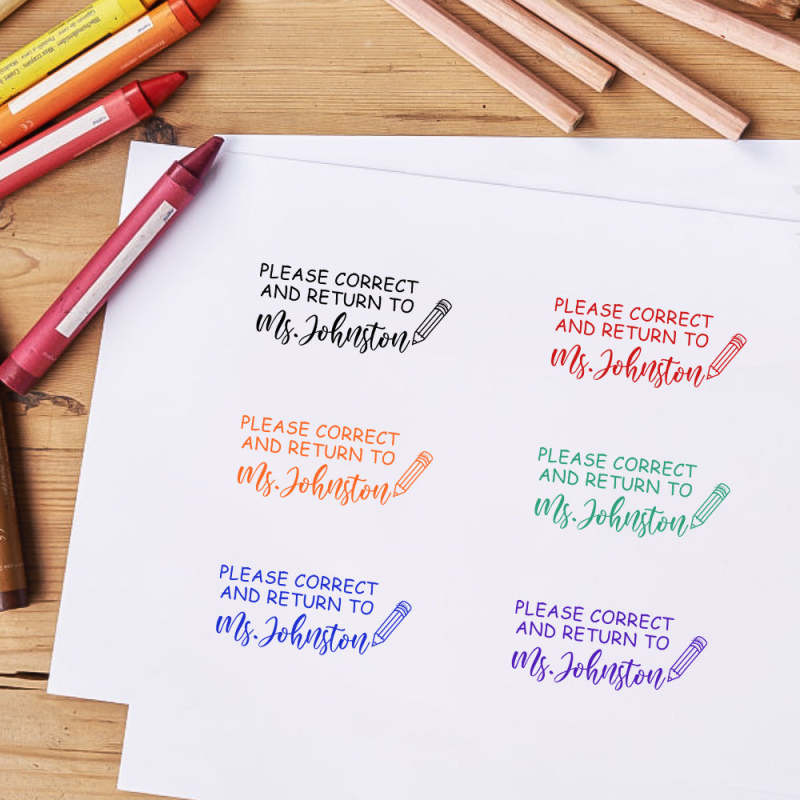 PLEASE CORRECT
AND RETURN TO
Ms. Johnston
PLEASE CORRECT
AND RETURN TO
Ms. Johnston
PLEASE CORRECT
AND RETURN TO
Ms. Johnston
PLEASE CORRECT
AND RETURN TO
Ms. Johnston
PLEASE CORRECT
AND RETURN TO
Ms. Johnston
PLEASE CORRECT
AND RETURN TO
Ms. Johnston